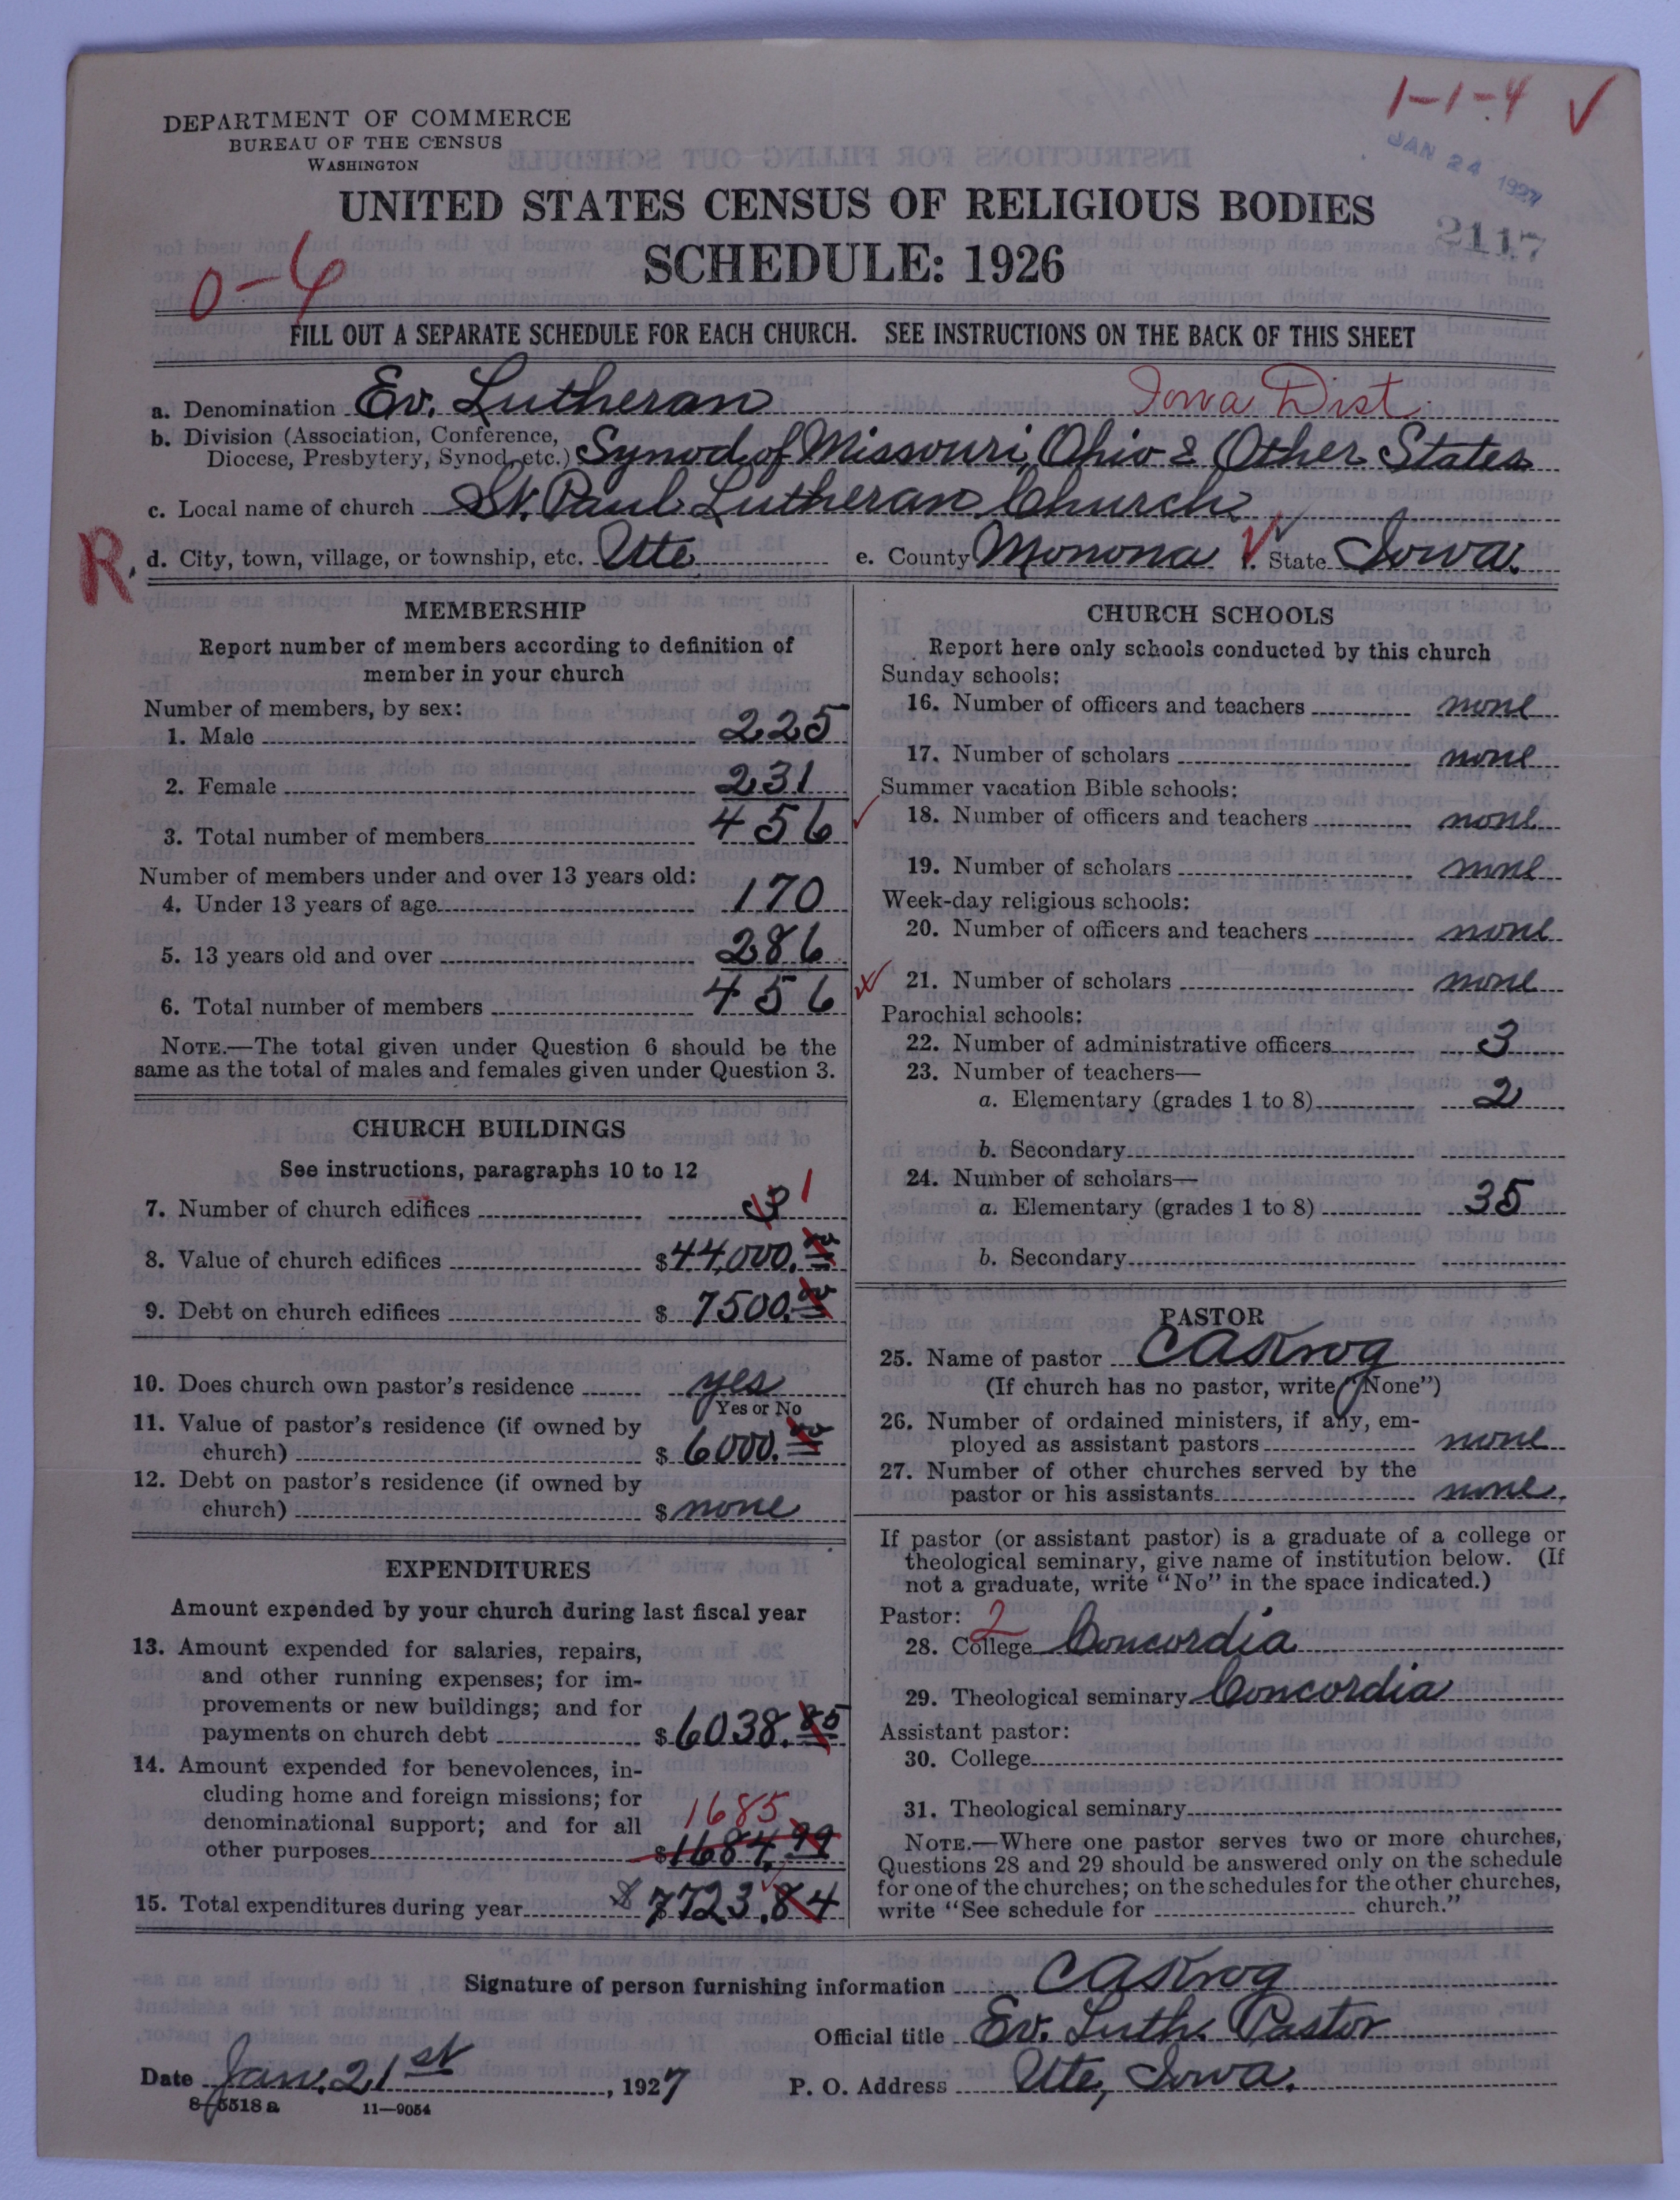 1-1-4 ✓
JAN 24 1927
2117
DEPARTMENT OF COMMERCE
BUREAU OF THE CENSUS
WASHINGTON
UNITED STATES CENSUS OF RELIGIOUS BODIES
SCHEDULE: 1926
0-6
FILL OUT A SEPARATE SCHEDULE FOR EACH CHURCH. SEE INSTRUCTIONS ON THE BACK OF THIS SHEET
a. Denomination Ev. Lutheran Iowa Dist.
b. Division (Association, Conference, Diocese, Presbytery, Synod, etc.) Synod of Missouri, Ohio & Other States
c. Local name of church St. Paul Lutheran Church
R. d. City, town, village, or township, etc. Ute e. County Monona f. State Iowa.
MEMBERSHIP
Report number of members according to definition of
member in your church
Number of members, by sex:
1. Male 225
2. Female 231
3. Total number of members 456
Number of members under and over 13 years old:
4. Under 13 years of age 170
5. 13 years old and over 286
6. Total number of members 456
NOTE.—The total given under Question 6 should be the
same as the total of males and females given under Question 3.
CHURCH BUILDINGS
See instructions, paragraphs 10 to 12
7. Number of church edifices 3 1
8. Value of church edifices $44,000.00
9. Debt on church edifices $ 7500.00
10. Does church own pastor's residence yes
Yes or No
11. Value of pastor's residence (if owned by
church) $ 6000.00
12. Debt on pastor's residence (if owned by
church) $ none
EXPENDITURES
Amount expended by your church during last fiscal year
13. Amount expended for salaries, repairs,
and other running expenses; for im-
provements or new buildings; and for
payments on church debt $ 6038.85
14. Amount expended for benevolences, in-
cluding home and foreign missions; for
denominational support; and for all 1685
other purposes $1684.99
15. Total expenditures during year $ 7723.84
CHURCH SCHOOLS
Report here only schools conducted by this church
Sunday schools:
16. Number of officers and teachers none
17. Number of scholars none
Summer vacation Bible schools:
18. Number of officers and teachers none
19. Number of scholars none
Week-day religious schools:
20. Number of officers and teachers none
21. Number of scholars none
Parochial schools:
22. Number of administrative officers 3
23. Number of teachers—
a. Elementary (grades 1 to 8) 2
b. Secondary
24. Number of scholars—
a. Elementary (grades 1 to 8) 35
b. Secondary
PASTOR
25. Name of pastor CAKrog
(If church has no pastor, write "None")
26. Number of ordained ministers, if any, em-
ployed as assistant pastors none
27. Number of other churches served by the
pastor or his assistants none.
If pastor (or assistant pastor) is a graduate of a college or
theological seminary, give name of institution below. (If
not a graduate, write "No" in the space indicated.)
Pastor: 2
28. College Concordia
29. Theological seminary Concordia
Assistant pastor:
30. College
31. Theological seminary
NOTE.—Where one pastor serves two or more churches,
Questions 28 and 29 should be answered only on the schedule
for one of the churches; on the schedules for the other churches,
write "See schedule for church."
Signature of person furnishing information CAKrog
Official title Ev. Luth. Pastor
Date Jan. 21st, 1927 P. O. Address Ute, Iowa.
8-5518a 11—9054